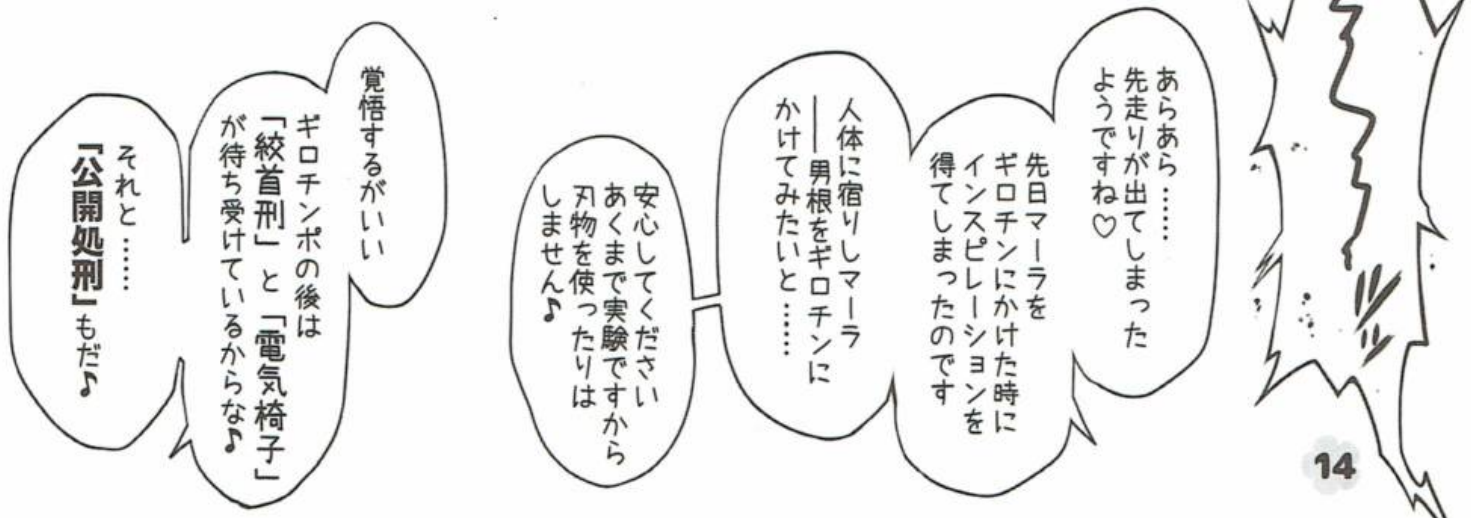 あらあら……
先走りが出てしまった
ようですね♡
先日マーラを
ギロチンにかけた時に
インスピレーションを
得てしまったのです
人体に宿りしマーラ
――男根をギロチンに
かけてみたいと……
安心してください
あくまで実験ですから
刃物を使ったりは
しません♪
覚悟するがいい
ギロチンポの後は
「絞首刑」と「電気椅子」
が待ち受けているからな♪
それと……
「公開処刑」もだ♪
14